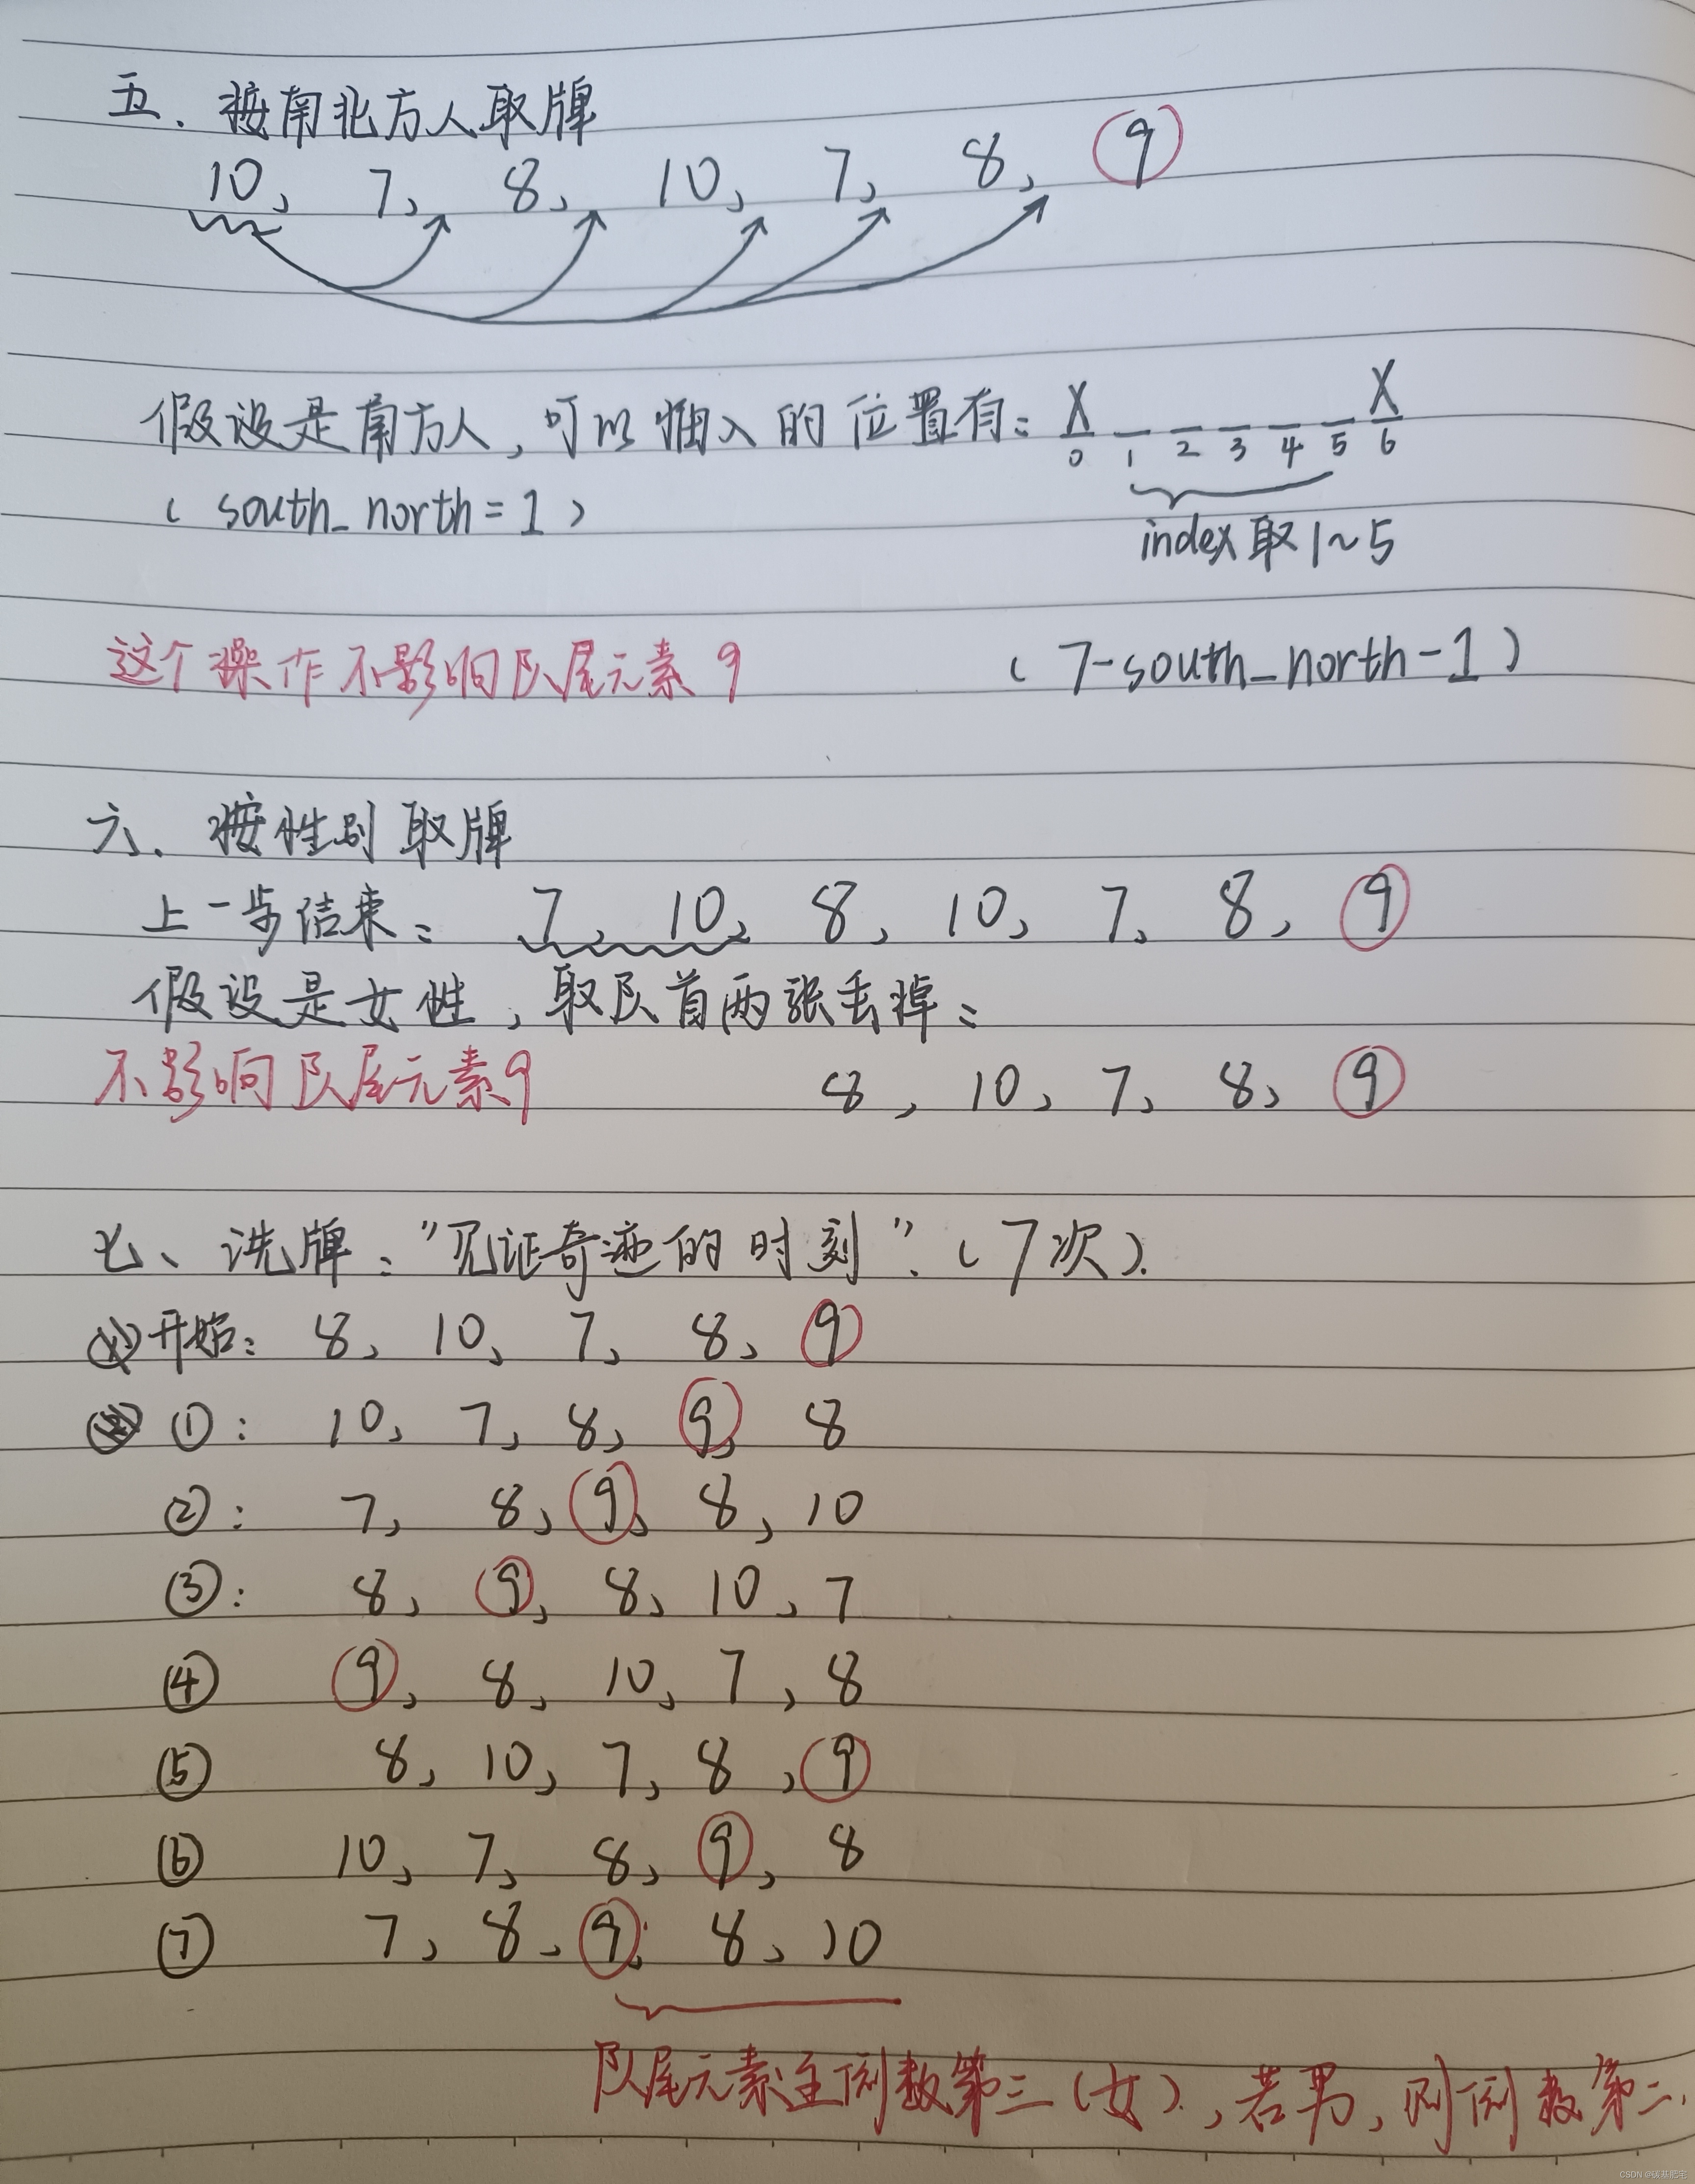 五、按南北方人取牌
10, 7, 8, 10, 7, 8, 9
假设是南方人,可以插入的位置有: X X
0 1 2 3 4 5 6
( south_north = 1 )
index取1~5
这个操作不影响队尾元素9
( 7-south_north-1 )
六、按性别取牌
上一步结束: 7, 10, 8, 10, 7, 8, 9
假设是女性,取队首两张丢掉:
不影响队尾元素9 8, 10, 7, 8, 9
七、洗牌:"见证奇迹的时刻".(7次).
开始: 8, 10, 7, 8, 9
①: 10, 7, 8, 9, 8
②: 7, 8, 9, 8, 10
③: 8, 9, 8, 10, 7
④ 9, 8, 10, 7, 8
⑤ 8, 10, 7, 8, 9
⑥ 10, 7, 8, 9, 8
⑦ 7, 8, 9, 8, 10
队尾元素至倒数第三(女).,若男,则倒数第二.
CSDN @碳基肥宅